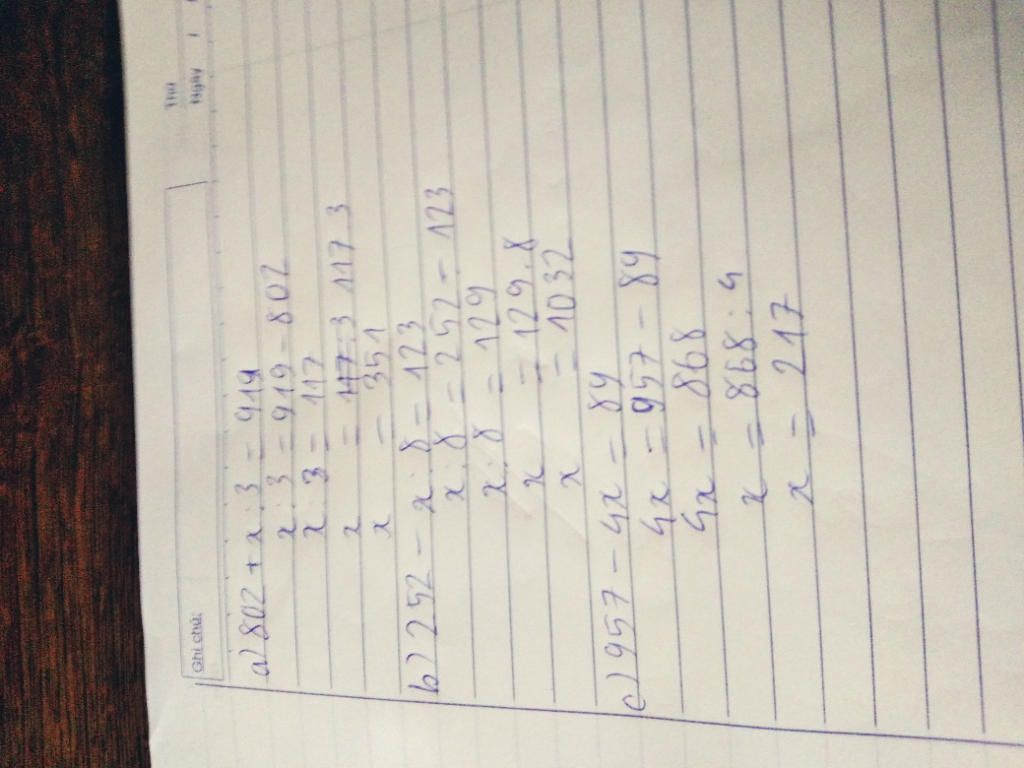 Thứ
Ngày
Ghi chú:
a) 802 + x : 3 = 919
x : 3 = 919 - 802
x : 3 = 117
x = 117 : 3 117 . 3
x = 351
b) 252 - x : 8 = 123
x : 8 = 252 - 123
x : 8 = 129
x = 129 . 8
x = 1032
c) 957 - 4x = 89
4x = 957 - 89
4x = 868
x = 868 : 4
x = 217